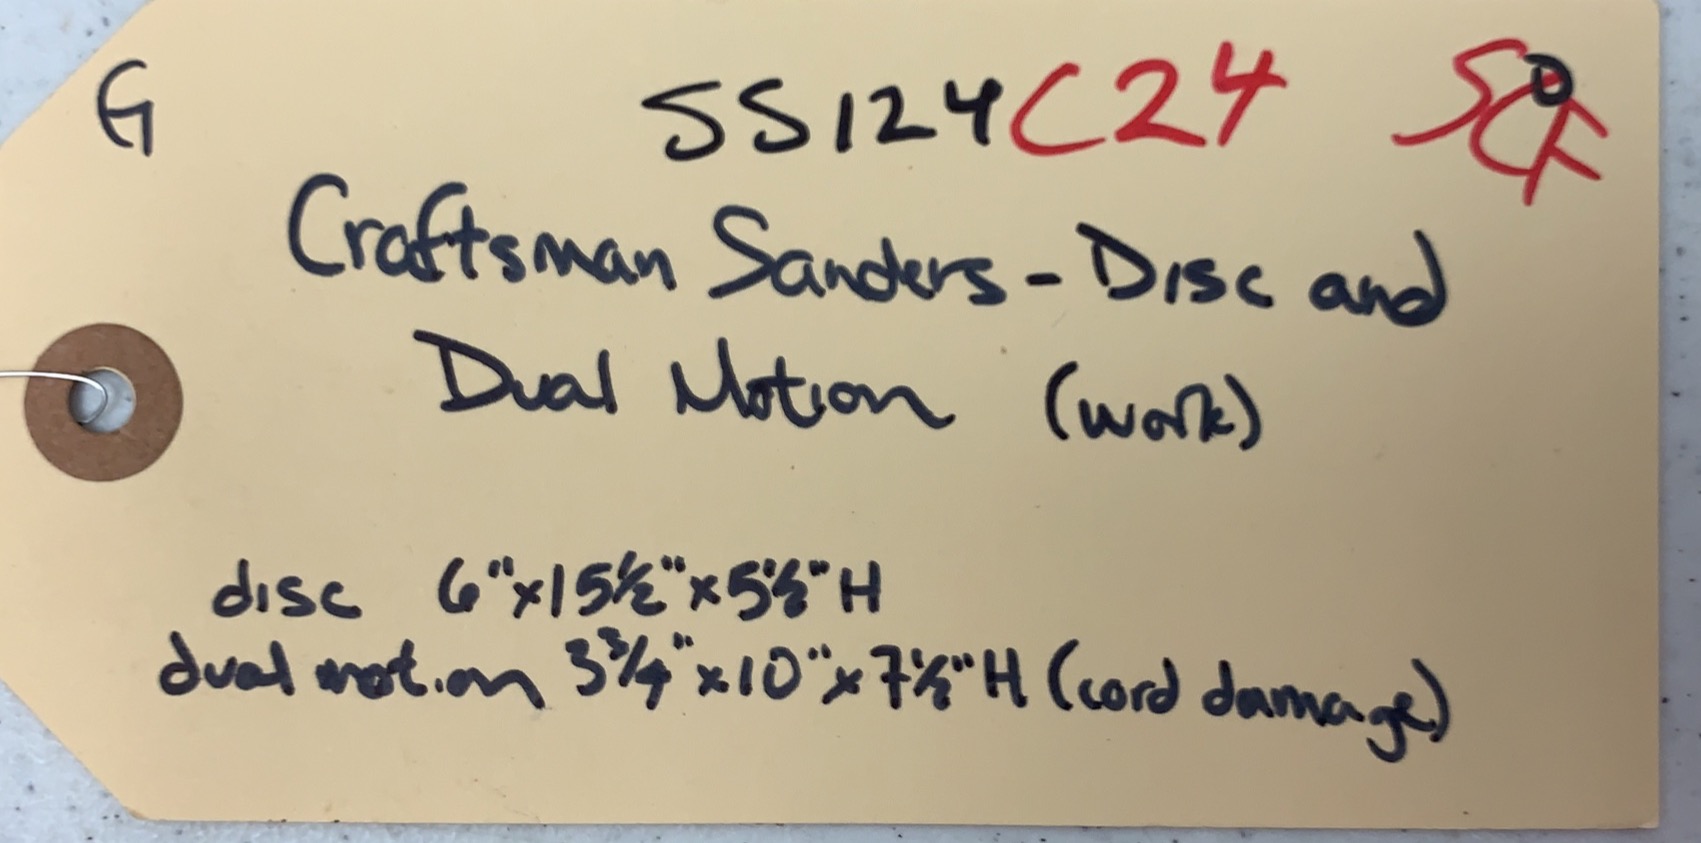 G SS124C24
Craftsman Sanders - Disc and
Dual Motion (work)
disc 6"x15½"x5½"H
dual motion 3¾"x10"x7½"H (cord damage)